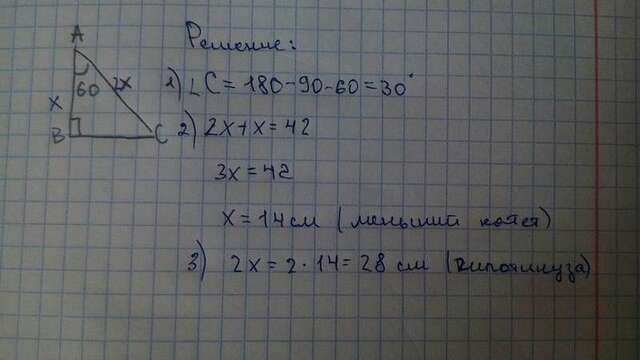 Решение:
A
60
2x
x
B
C
1) ∠C = 180-90-60=30°
2) 2x+x=42
3x=42
x=14 см (меньший катет)
3) 2x=2·14=28 см (гипотинуза)